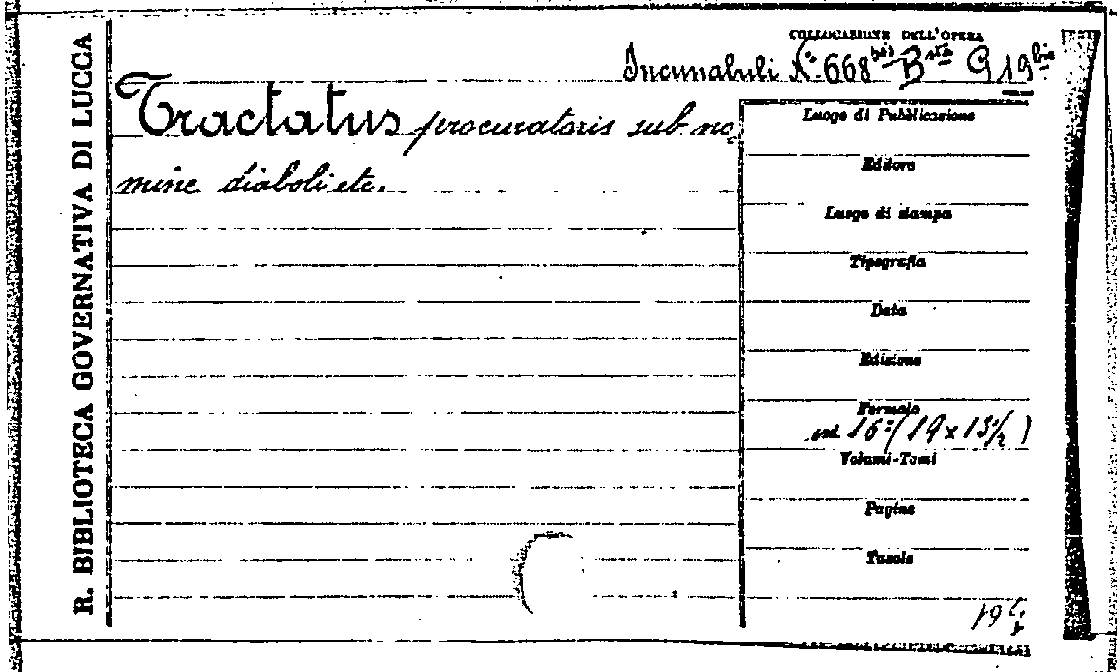 R. BIBLIOTECA GOVERNATIVA DI LUCCA
COLLOCAZIONE DELL'OPERA
Incunabuli N.° 668 bis B.ta G 19 bis
Tractatus procuratoris sub no-
mine diaboli etc.
Luogo di Pubblicazione
Editore
Luogo di stampa
Tipografia
Data
Edizione
Formato
16° (19 x 13 1/2)
Volumi-Tomi
Pagine
Tavole